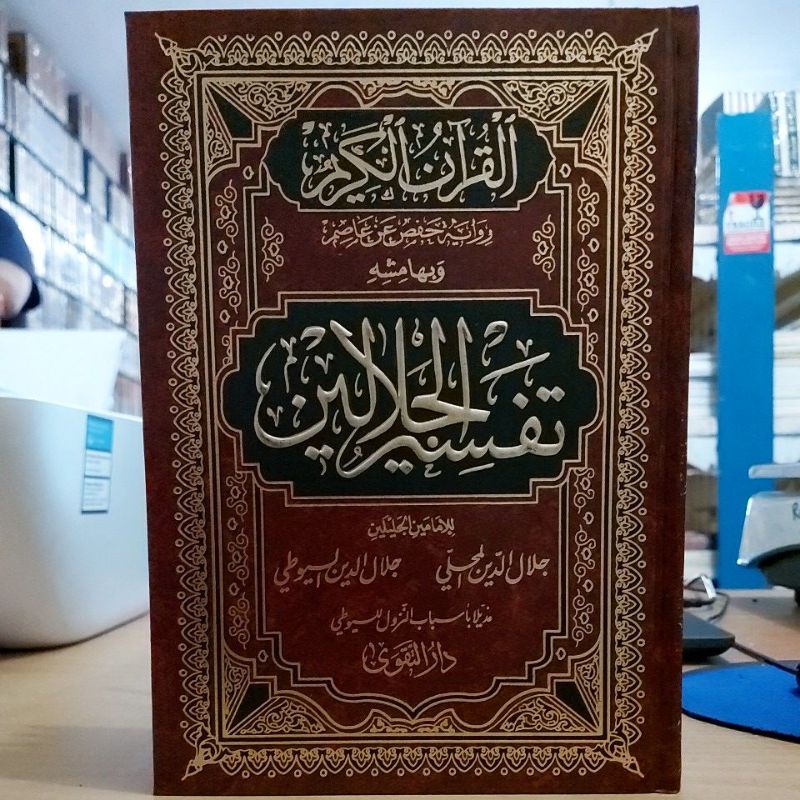 ٱلْقُرْآنُ ٱلْكَرِيْمُ
رواية حفص عن عاصم
وبهامشه
تفسير الجلالين
للإمامين الجليلين
جلال الدين المحلي جلال الدين السيوطي
مذيلا بأسباب النزول للسيوطي
دار التقوى